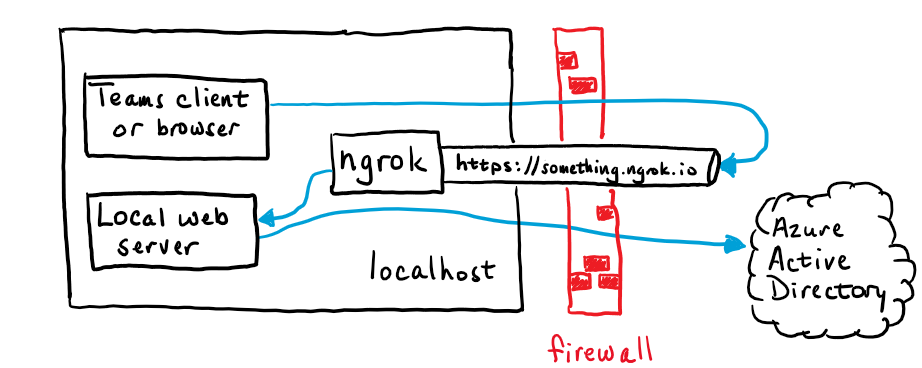 Teams client
or browser
ngrok
https://something.ngrok.io
Local web
server
localhost
Azure
Active
Directory
firewall